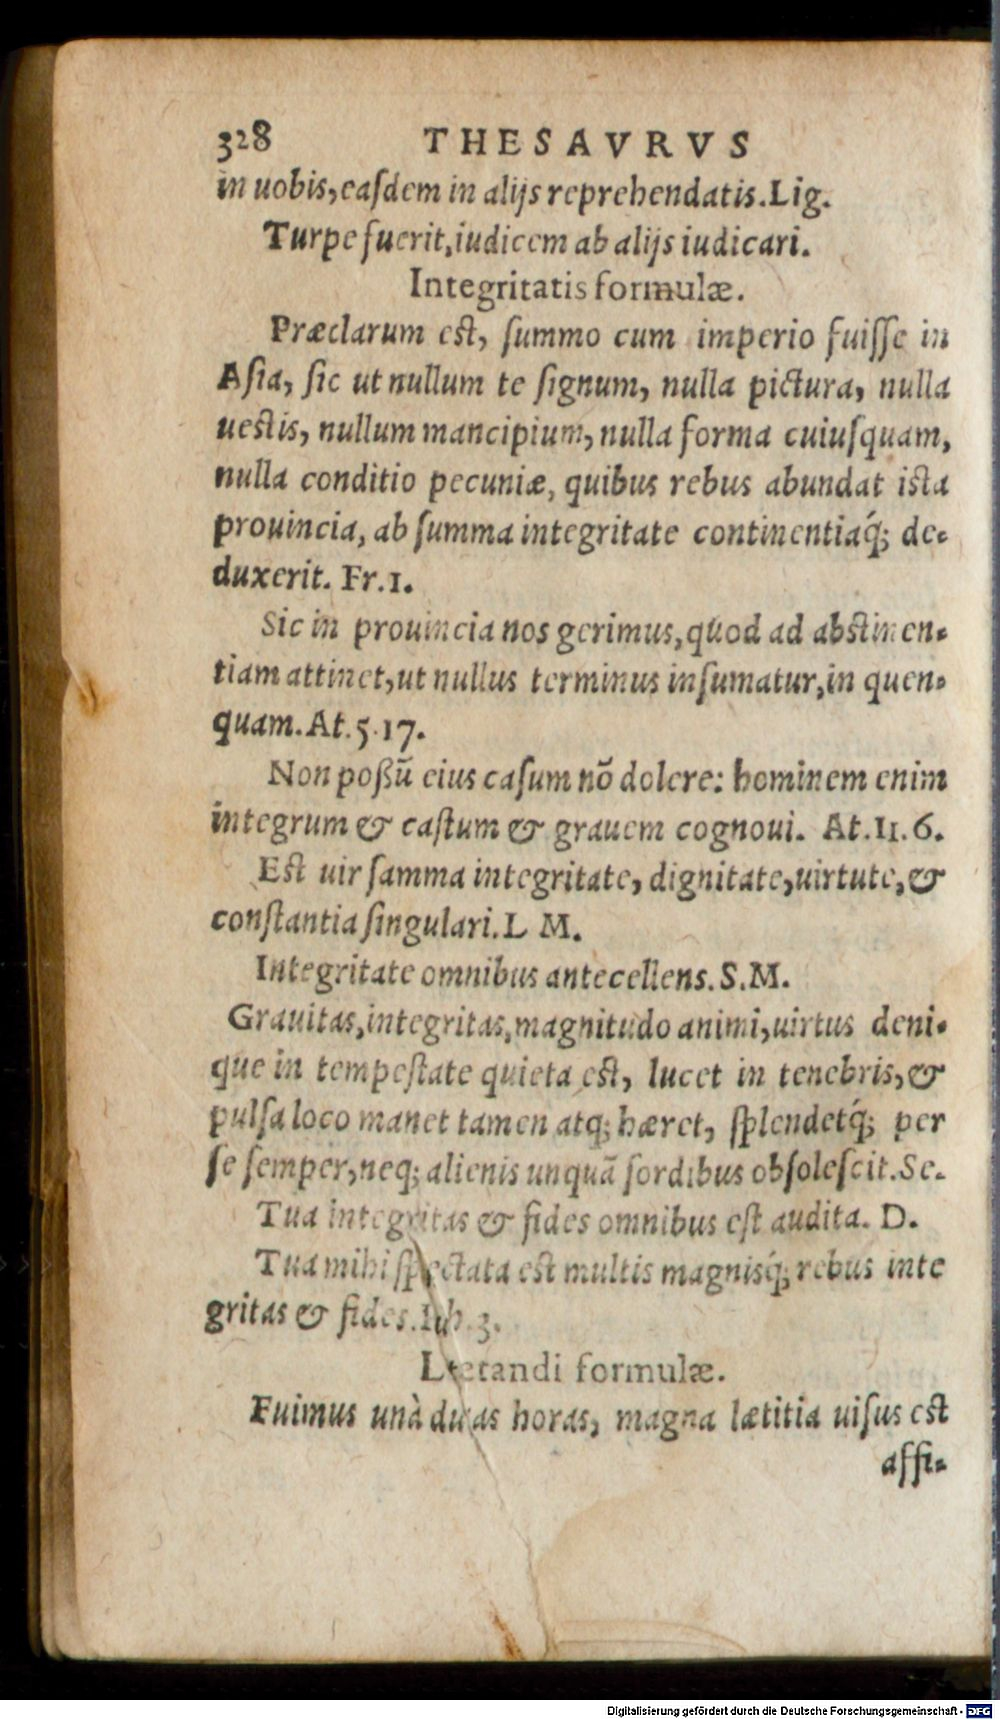 328 THESAVRVS
in uobis, easdem in alijs reprehendatis. Lig.
Turpe fuerit, iudicem ab alijs iudicari.
Integritatis formulæ.
Præclarum est, summo cum imperio fuisse in
Asia, sic ut nullum te signum, nulla pictura, nulla
uestis, nullum mancipium, nulla forma cuiusquam,
nulla conditio pecuniæ, quibus rebus abundat ista
prouincia, ab summa integritate continentiaq́; de-
duxerit. Fr. 1.
Sic in prouincia nos gerimus, quod ad abstinen-
tiam attinet, ut nullus terminus insumatur, in quen-
quam. At. 5. 17.
Non poßū eius casum nō dolere: hominem enim
integrum & castum & grauem cognoui. At. 11. 6.
Est uir samma integritate, dignitate, uirtute, &
constantia singulari. L M.
Integritate omnibus antecellens. S. M.
Grauitas, integritas, magnitudo animi, uirtus deni-
que in tempestate quieta est, lucet in tenebris, &
pulsa loco manet tamen atq; hæret, splendetq́; per
se semper, neq; alienis unquā sordibus obsolescit. Se.
Tua integritas & fides omnibus est audita. D.
Tua mihi spectata est multis magnisq́; rebus inte
gritas & fides. 3.
formulæ.
Fuimus unà duas horas, magna lætitia uisus est
affi-
Digitalisierung gefördert durch die Deutsche Forschungsgemeinschaft - DFG